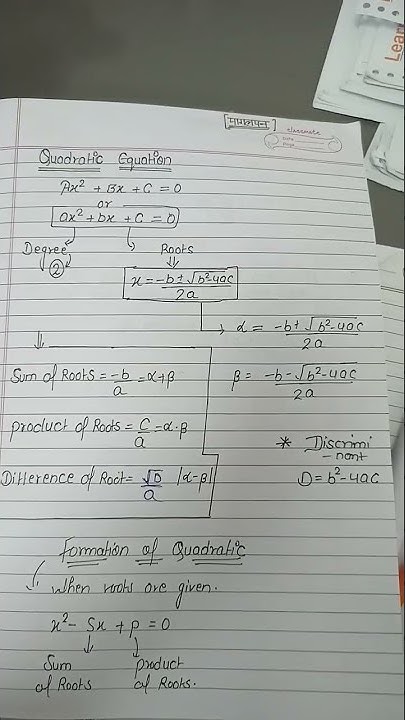 classmate
Quadratic Equation
Ax² + Bx + C = 0
or
ax² + bx + c = 0
Degree
2
Roots
x = -b ± √b²-4ac / 2a
α = -b + √b²-4ac / 2a
Sum of Roots = -b/a = α+β
β = -b - √b²-4ac / 2a
Product of Roots = c/a = α·β
* Discrimi
- nant
Difference of Root = √D/a |α-β|
D = b²-4ac
Formation of Quadratic
When roots are given.
x² - Sx + p = 0
Sum
of Roots
product
of Roots.